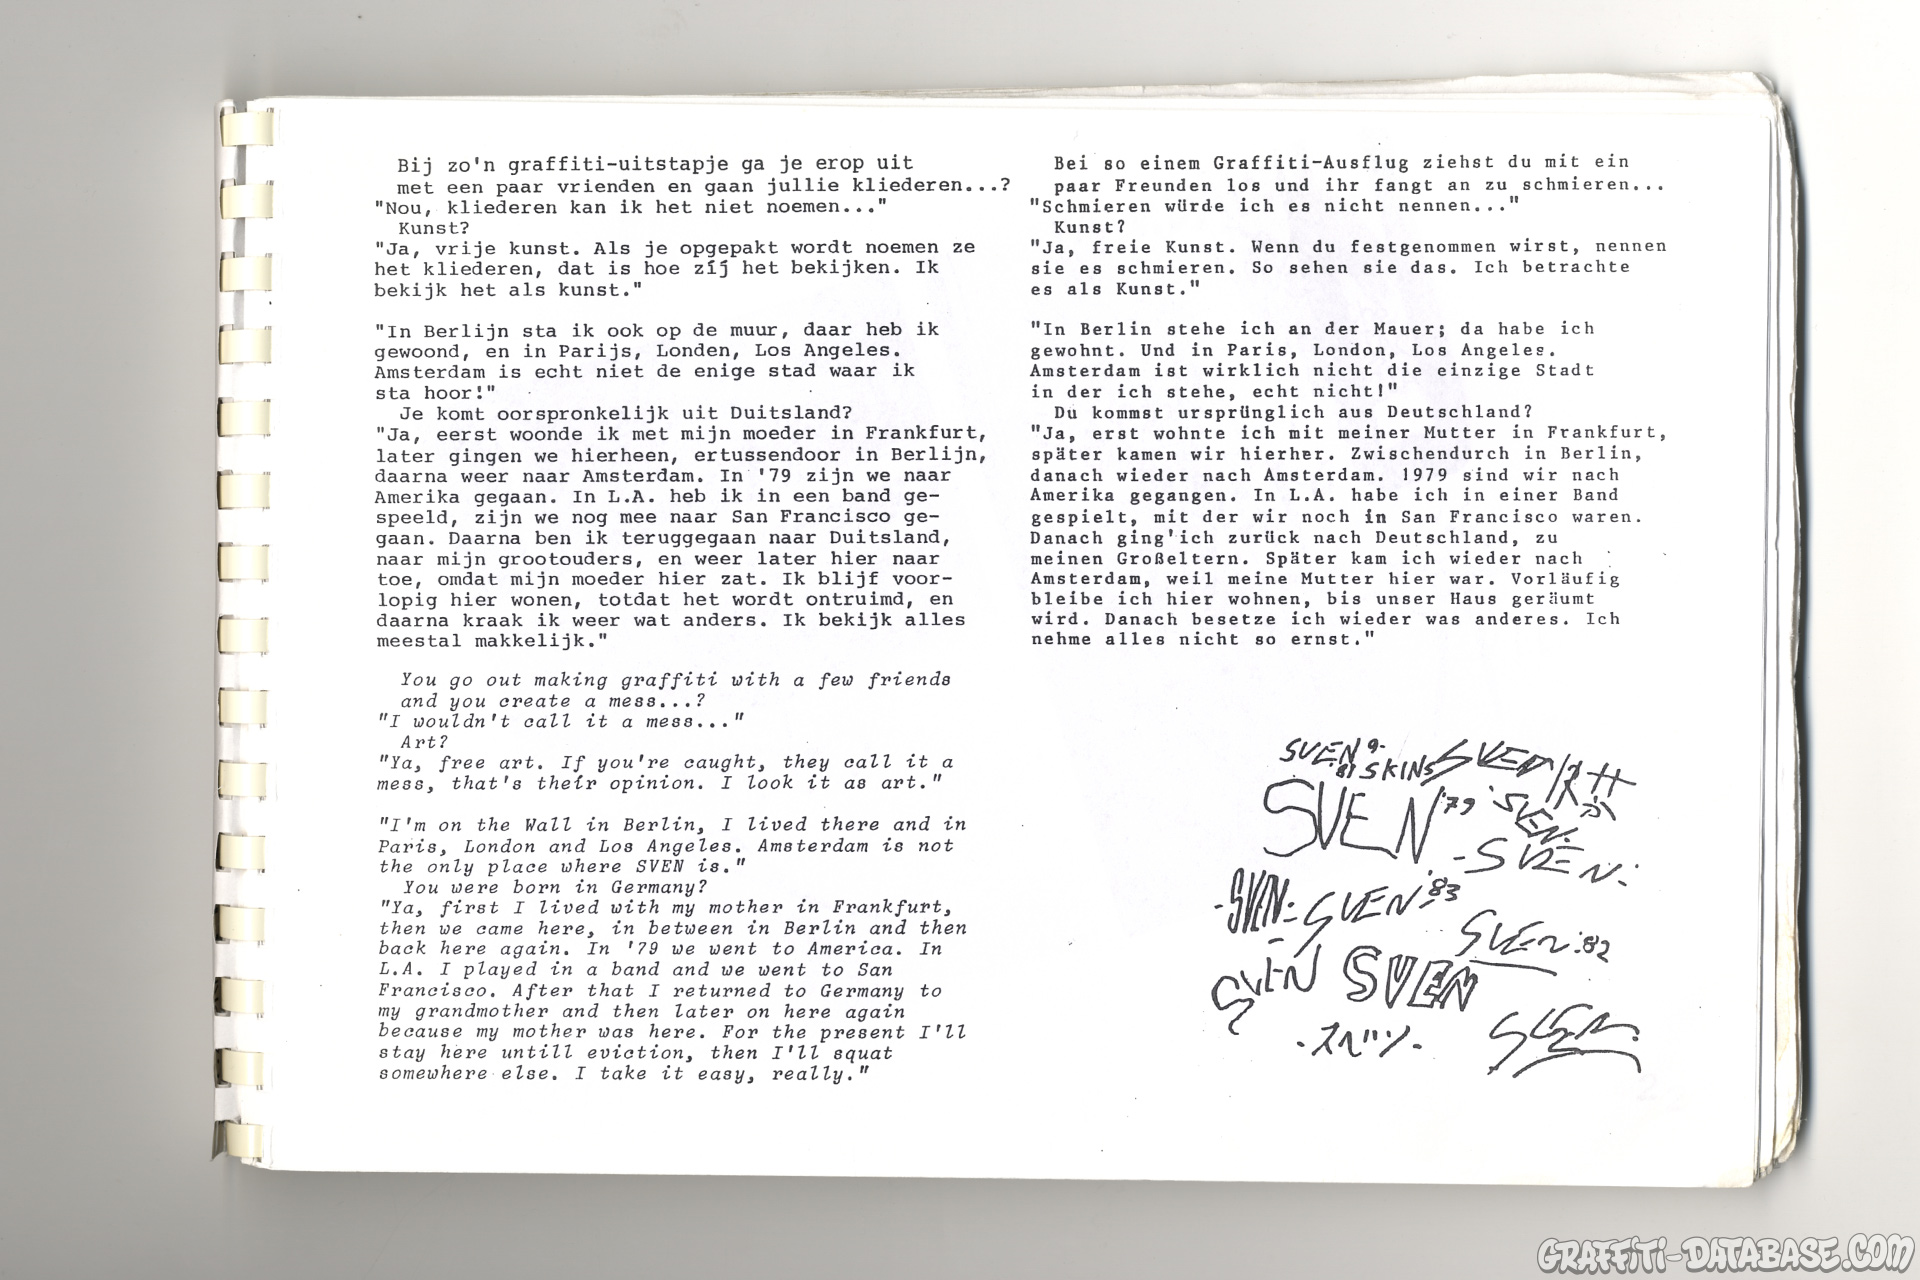 Bij zo'n graffiti-uitstapje ga je erop uit
met een paar vrienden en gaan jullie kliederen...?
"Nou, kliederen kan ik het niet noemen..."
Kunst?
"Ja, vrije kunst. Als je opgepakt wordt noemen ze
het kliederen, dat is hoe zíj het bekijken. Ik
bekijk het als kunst."
"In Berlijn sta ik ook op de muur, daar heb ik
gewoond, en in Parijs, Londen, Los Angeles.
Amsterdam is echt niet de enige stad waar ik
sta hoor!"
Je komt oorspronkelijk uit Duitsland?
"Ja, eerst woonde ik met mijn moeder in Frankfurt,
later gingen we hierheen, ertussendoor in Berlijn,
daarna weer naar Amsterdam. In '79 zijn we naar
Amerika gegaan. In L.A. heb ik in een band ge-
speeld, zijn we nog mee naar San Francisco ge-
gaan. Daarna ben ik teruggegaan naar Duitsland,
naar mijn grootouders, en weer later hier naar
toe, omdat mijn moeder hier zat. Ik blijf voor-
lopig hier wonen, totdat het wordt ontruimd, en
daarna kraak ik weer wat anders. Ik bekijk alles
meestal makkelijk."
You go out making graffiti with a few friends
and you create a mess...?
"I wouldn't call it a mess..."
Art?
"Ya, free art. If you're caught, they call it a
mess, that's their opinion. I look it as art."
"I'm on the Wall in Berlin, I lived there and in
Paris, London and Los Angeles. Amsterdam is not
the only place where SVEN is."
You were born in Germany?
"Ya, first I lived with my mother in Frankfurt,
then we came here, in between in Berlin and then
back here again. In '79 we went to America. In
L.A. I played in a band and we went to San
Francisco. After that I returned to Germany to
my grandmother and then later on here again
because my mother was here. For the present I'll
stay here untill eviction, then I'll squat
somewhere else. I take it easy, really."
Bei so einem Graffiti-Ausflug ziehst du mit ein
paar Freunden los und ihr fangt an zu schmieren...
"Schmieren würde ich es nicht nennen..."
Kunst?
"Ja, freie Kunst. Wenn du festgenommen wirst, nennen
sie es schmieren. So sehen sie das. Ich betrachte
es als Kunst."
"In Berlin stehe ich an der Mauer; da habe ich
gewohnt. Und in Paris, London, Los Angeles.
Amsterdam ist wirklich nicht die einzige Stadt
in der ich stehe, echt nicht!"
Du kommst ursprünglich aus Deutschland?
"Ja, erst wohnte ich mit meiner Mutter in Frankfurt,
später kamen wir hierher. Zwischendurch in Berlin,
danach wieder nach Amsterdam. 1979 sind wir nach
Amerika gegangen. In L.A. habe ich in einer Band
gespielt, mit der wir noch in San Francisco waren.
Danach ging'ich zurück nach Deutschland, zu
meinen Großeltern. Später kam ich wieder nach
Amsterdam, weil meine Mutter hier war. Vorläufig
bleibe ich hier wohnen, bis unser Haus geräumt
wird. Danach besetze ich wieder was anderes. Ich
nehme alles nicht so ernst."
SVEN
'81 SKINS
SVEN
SVEN '79
SVEN
-SVEN-
-SVEN-
SVEN '83
SVEN '82
SVEN
SVEN
SVEN
GRAFFITI-DATABASE.COM